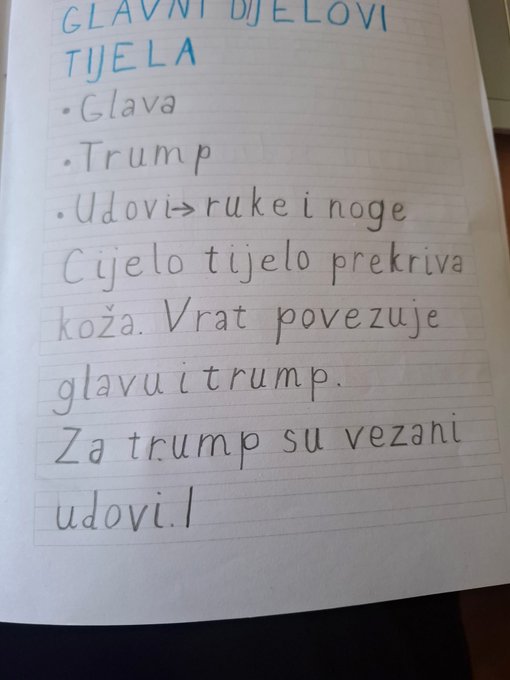 GLAVNI DIJELOVI
TIJELA
• Glava
• Trump
• Udovi→ ruke i noge
Cijelo tijelo prekriva
koža. Vrat povezuje
glavu i trump.
Za trump su vezani
udovi. |